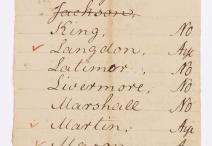 Jackson,
King, No
✓ Langdon, Aye
Latimer, No
Livermore, No
Marshall No
✓ Martin, Aye
✓ Mason